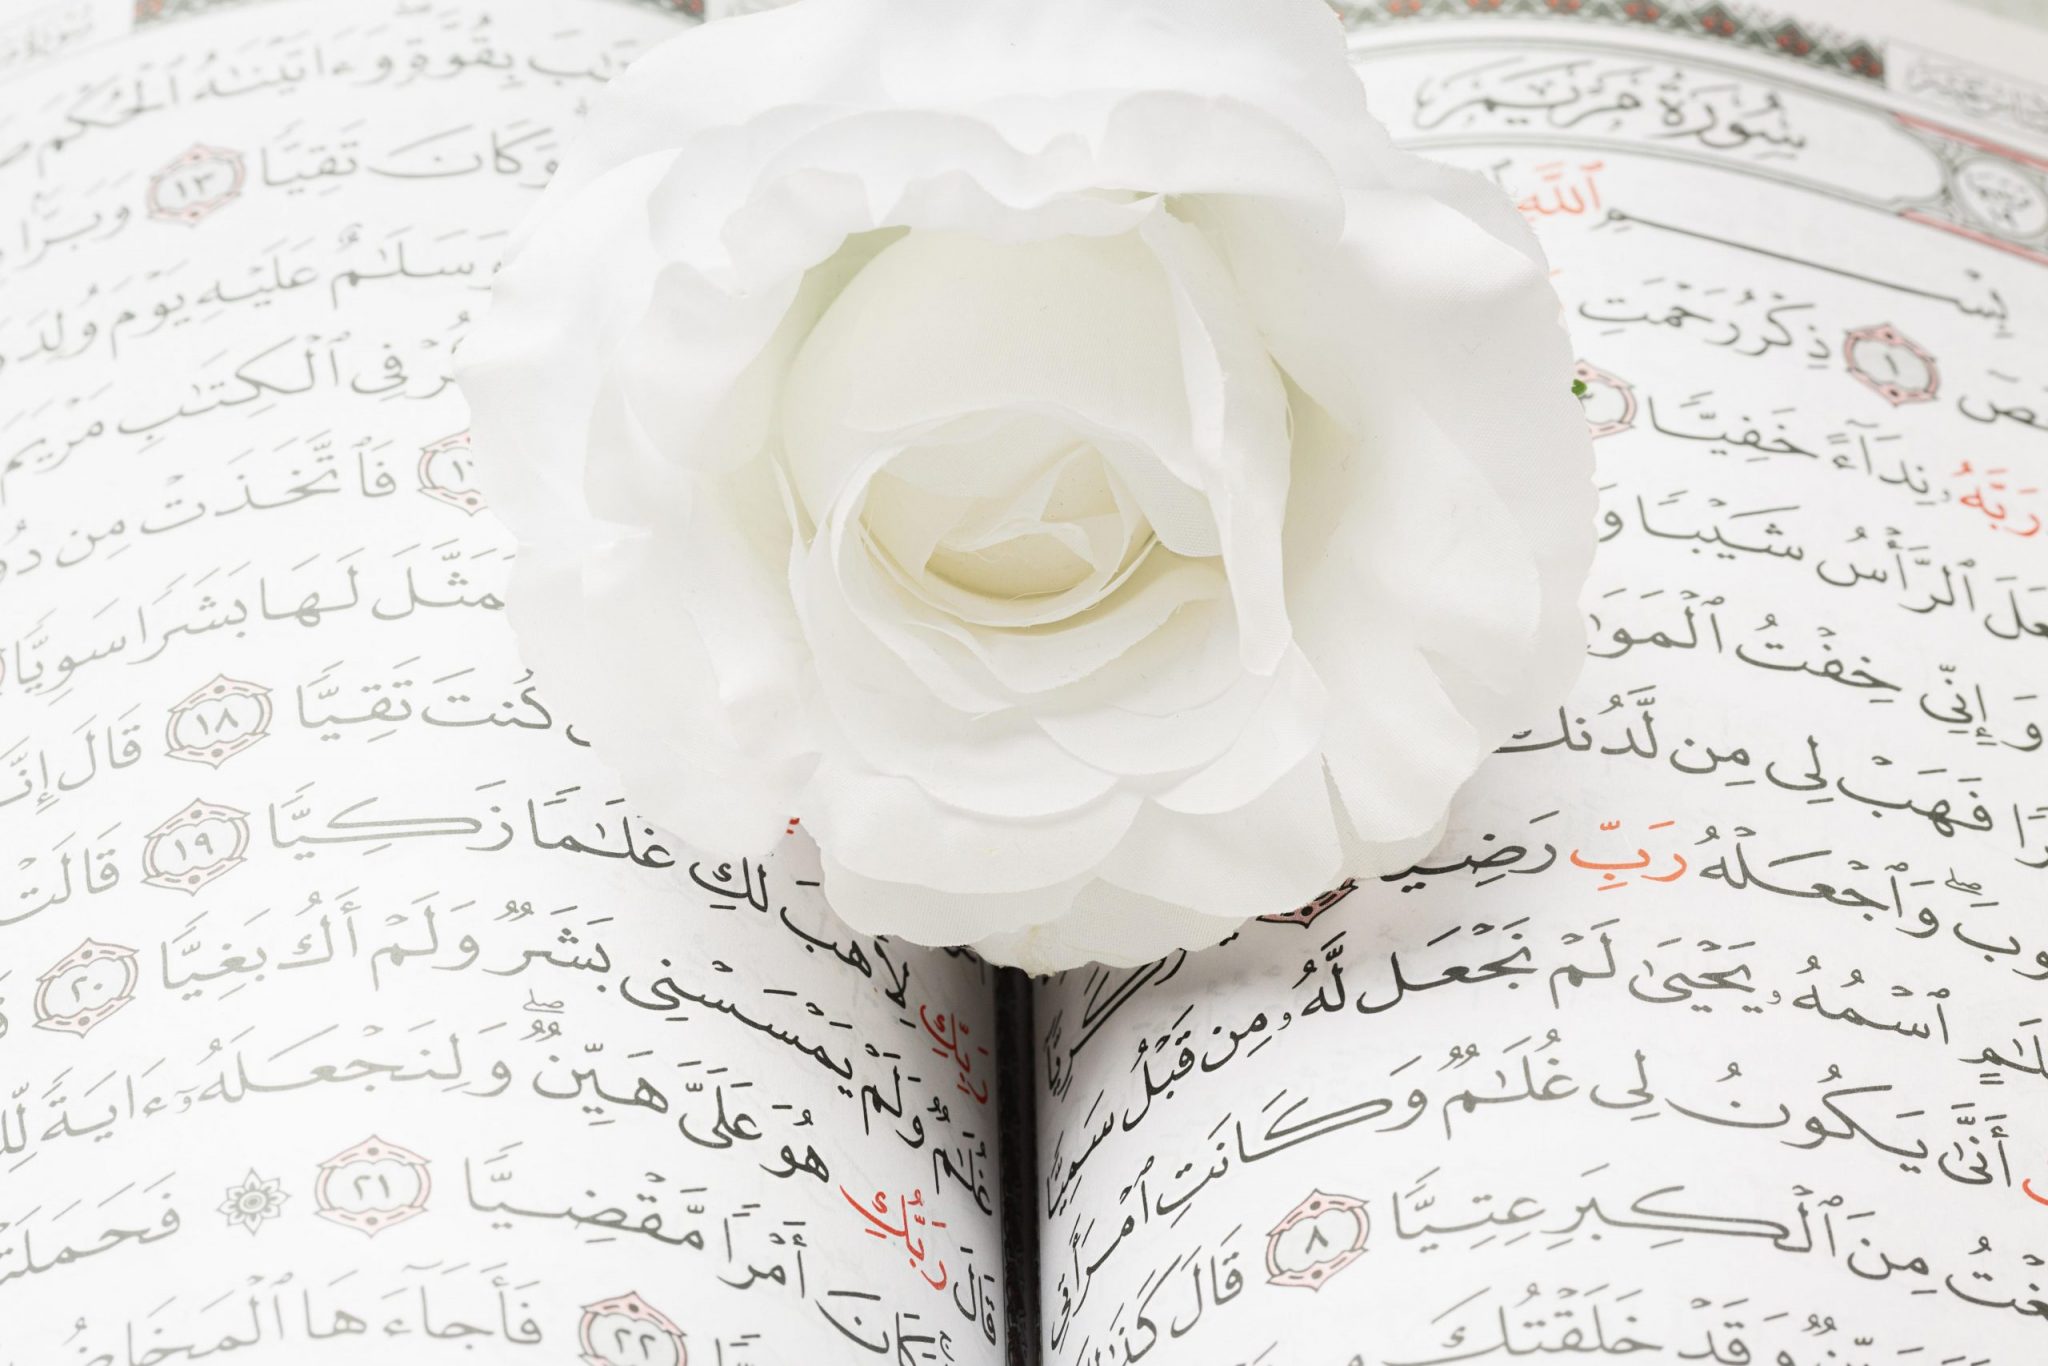 سُورَةُ مَرْيَمَ
بِسْمِ ٱللَّهِ
١ ذِكْرُ رَحْمَتِ
رَبَّهُۥ نِدَآءً خَفِيًّا
ٱلرَّأْسُ شَيْبًا وَ
وَإِنِّي خِفْتُ
فَهَبْ لِي مِن لَّدُنكَ
وَٱجْعَلْهُ رَبِّ رَضِيًّا
ٱسْمُهُۥ يَحْيَىٰ لَمْ نَجْعَل لَّهُۥ مِن قَبْلُ سَمِيًّا
أَنَّىٰ يَكُونُ لِي غُلَٰمٌ وَكَانَتِ ٱمْرَأَتِي
مِنَ ٱلْكِبَرِ عِتِيًّا ٨ قَالَ
وَقَدْ خَلَقْتُكَ
بِقُوَّةٍ ۖ وَءَاتَيْنَٰهُ ٱلْحُكْمَ
وَكَانَ تَقِيًّا ١٣ وَبَرًّا
وَسَلَٰمٌ عَلَيْهِ يَوْمَ وُلِدَ
فِي ٱلْكِتَٰبِ مَرْيَمَ
فَٱتَّخَذَتْ مِن
لَهَا بَشَرًا سَوِيًّا
كُنتَ تَقِيًّا ١٨ قَالَ
رَبِّكِ لِأَهَبَ لَكِ غُلَٰمًا زَكِيًّا ١٩ قَالَتْ
غُلَٰمٌ وَلَمْ يَمْسَسْنِي بَشَرٌ وَلَمْ أَكُ بَغِيًّا ٢٠
قَالَ رَبُّكِ هُوَ عَلَيَّ هَيِّنٌ ۖ وَلِنَجْعَلَهُۥٓ ءَايَةً
وَكَانَ أَمْرًا مَّقْضِيًّا ٢١ ۞ فَحَمَلَتْ
٢٢ فَأَجَآءَهَا ٱلْمَخَاضُ